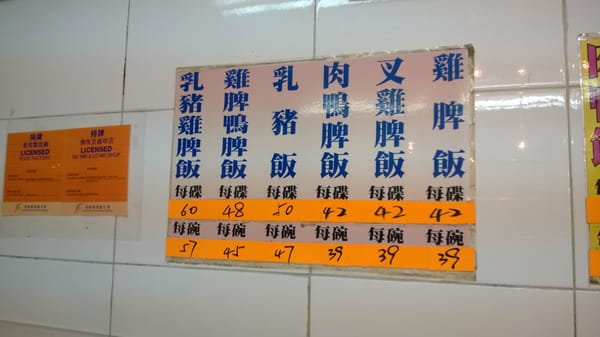 持牌
食物製造廠
LICENSED
FOOD FACTORY
持牌
燒味及鹵味店
LICENSED
SIU MEI & LO MEI SHOP
乳豬雞脾飯
每碟
60
每碗
57
雞脾鴨脾飯
每碟
48
每碗
45
乳豬飯
每碟
50
每碗
47
肉鴨脾飯
每碟
42
每碗
39
叉雞脾飯
每碟
42
每碗
39
雞脾飯
每碟
42
每碗
39